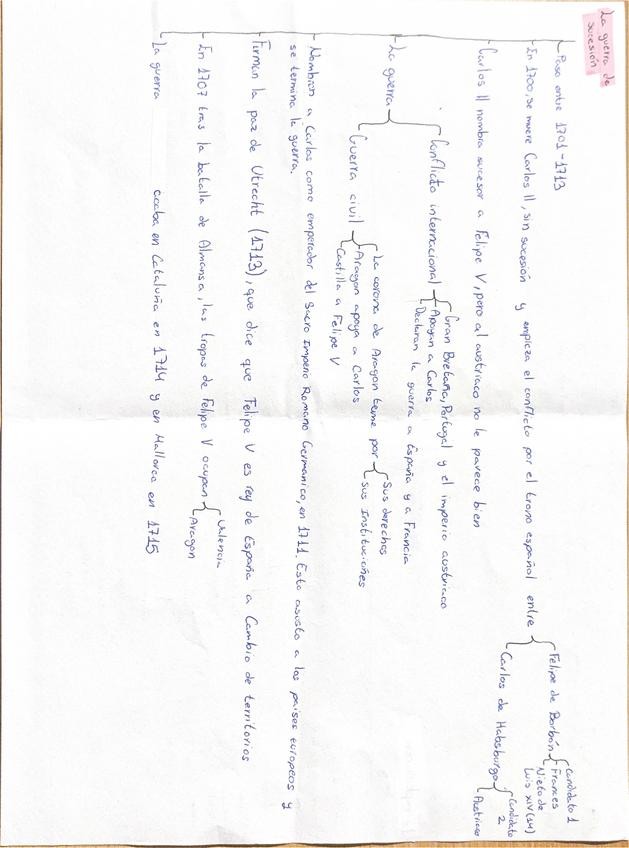 La guerra de
sucesión
Paso entre 1701-1713
En 1700, se muere Carlos II, sin sucesión y empieza el conflicto por el trono español entre
Felipe de Borbón
Candidato 1
Frances
Nieto de
Luis XIV (14)
Carlos de Habsburgo
Candidato
2
Austriaco
Carlos II nombra sucesor a Felipe V, pero al austriaco no le parece bien
La guerra
Conflicto internacional
Gran Bretaña, Portugal y el imperio austriaco
Apoyan a Carlos
Declaran la guerra a España y a Francia
Guerra civil
La corona de Aragon teme por
Sus derechos
Sus Instituciones
Aragon apoya a Carlos
Castilla a Felipe V
Nombran a Carlos como emperador del Sacro Imperio Romano Germanico, en 1711. Esto asusto a los paises europeos y
se termina la guerra.
Firman la paz de Utrecht (1713), que dice que Felipe V es rey de España a Cambio de territorios
En 1707 tras la batalla de Almansa, las tropas de Felipe V ocupan
Valencia
Aragon
La guerra acaba en Cataluña en 1714 y en Mallorca en 1715